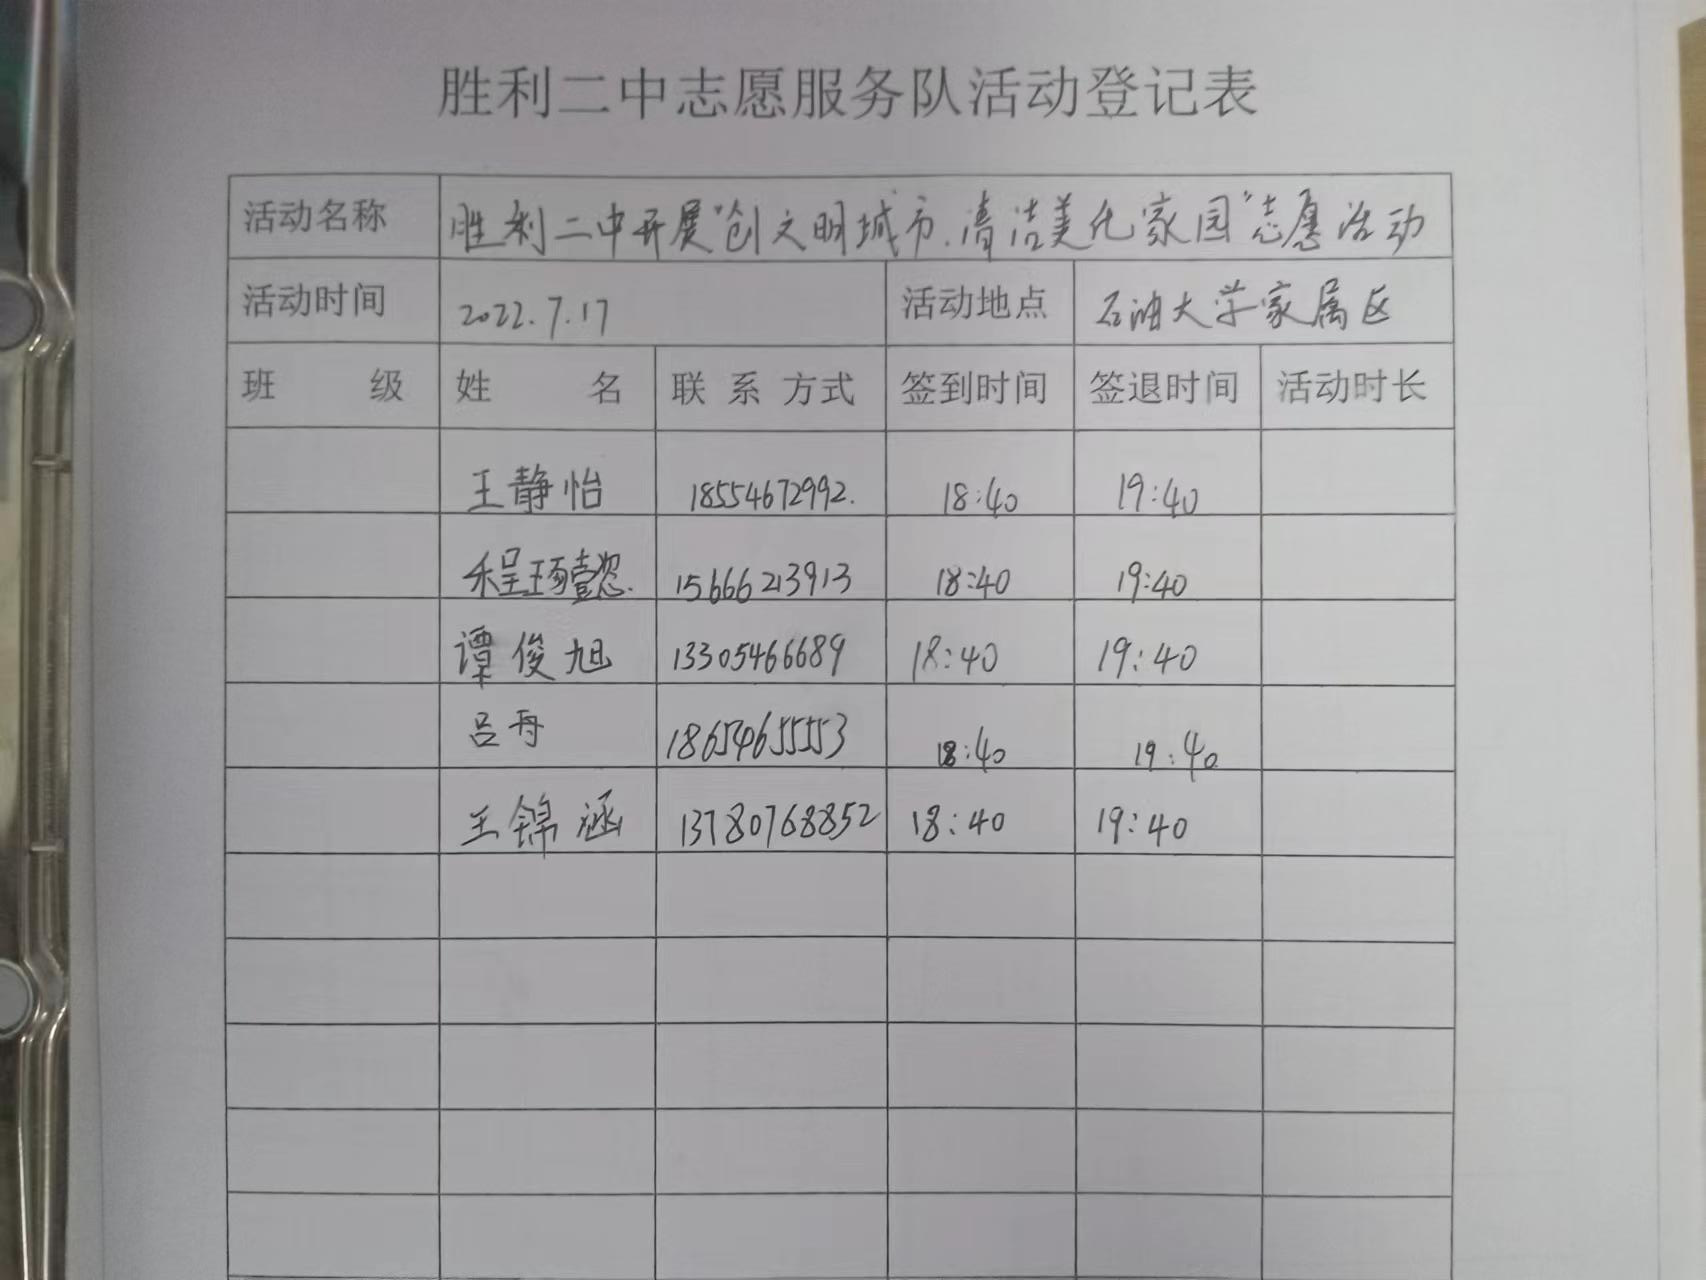 胜利二中志愿服务队活动登记表
活动名称 胜利二中开展"创文明城市,清洁美化家园"志愿活动
活动时间 2022.7.17 活动地点 石油大学家属区
班 级 姓 名 联 系 方式 签到时间 签退时间 活动时长
王静怡 18554672992. 18:40 19:40
15666213913 18:40 19:40
谭俊旭 13305466689 18:40 19:40
吕冉 18654655553 18:40 19:40
王锦涵 13780768852 18:40 19:40